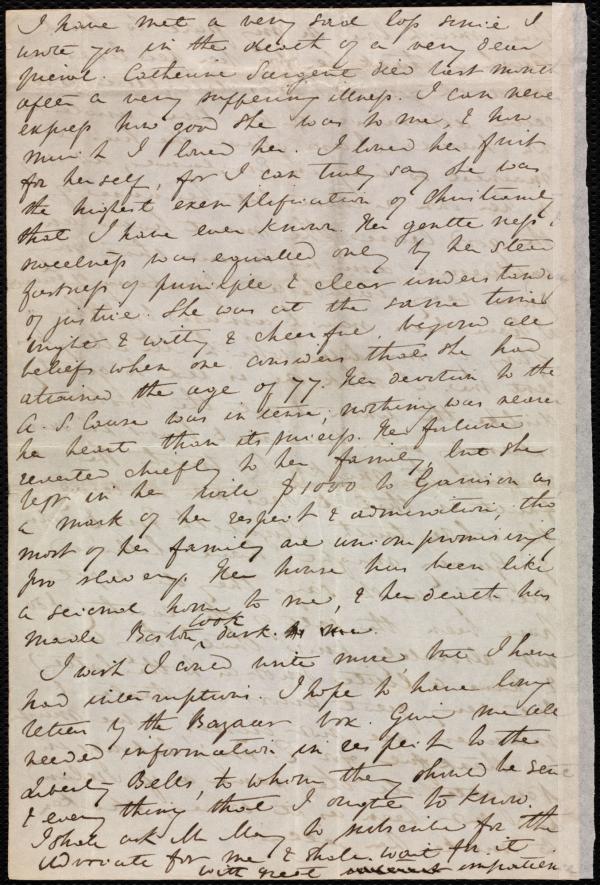 I have met a very sad loss since I
wrote you in the death of a very dear
friend. Catherine Sargent died last month
after a very suffering illness. I can never
express how good she was to me, & how
much I loved her. I loved her first
for herself, for I can truly say she was
the highest exemplification of Christianity
that I have ever known. Her gentleness &
sweetness was equalled only by her stead
fastness of principle & clear understanding
of justice. She was at the same time
bright & witty & cheerful beyond all
belief when one considers that she had
attained the age of 77. Her devotion to the
A. S. Cause was intense; nothing was nearer
her heart than its success. Her fortune
reverted chiefly to her family, but she
left in her will $1000 to Garrison as
a mark of her respect & admiration, tho
most of her family are uncompromisingly
pro slavery. Her house has been like
a second home to me, & her death has
made Boston look dark.
I wish I could write more but I have
had interruptions. I hope to have long
letters by the Bazaar box. Give me all
needed information in respect to the
Liberty Bells, to whom they should be sent
& every thing that I ought to know.
I shall ask Mr May to subscribe for the
Advocate for me & shall wait for it
with great impatience